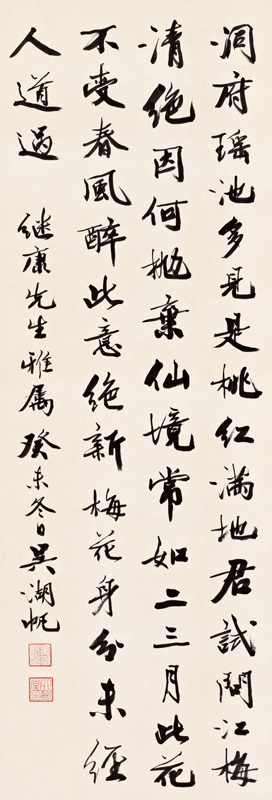 洞府瑶池多見是桃红满地君試問江梅
清绝因何抛棄仙境常如二三月此花
不受春風醉此意绝新梅花身分未經
人道過
继康先生雅属癸未冬日吴湖帆